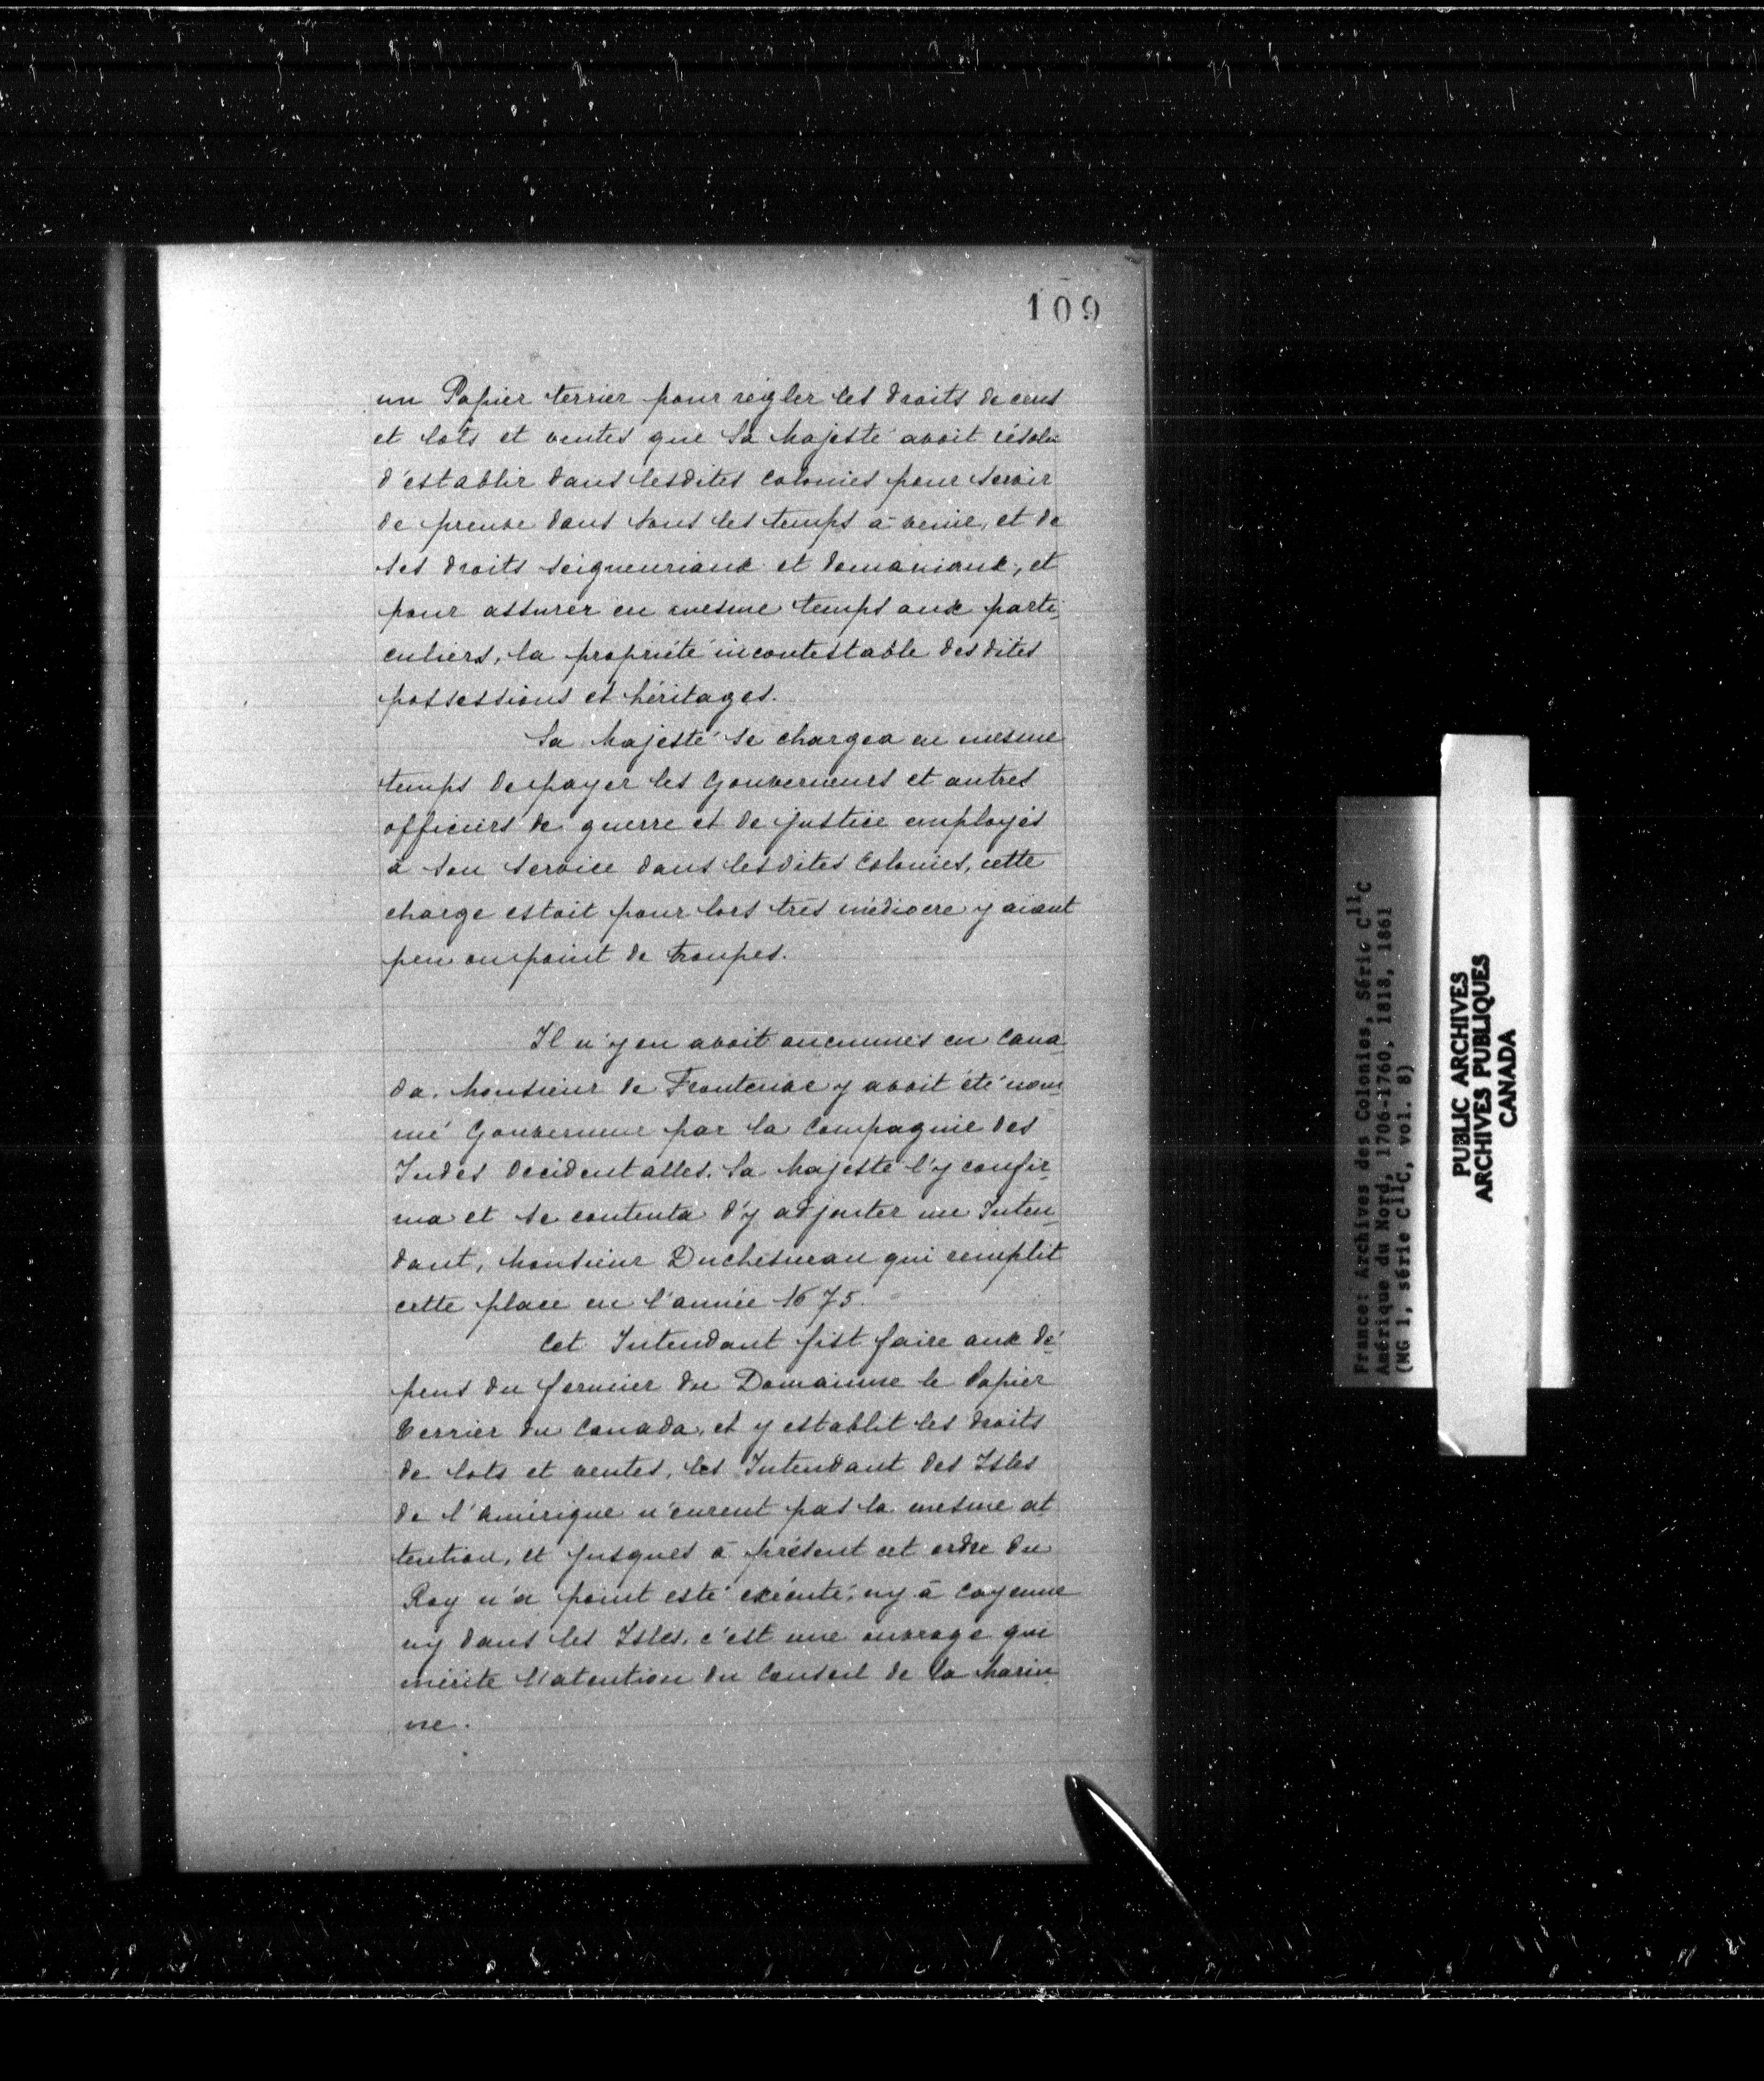 109
un Papier terrier pour reigler les droits de cens
et lots et ventes que Sa Majesté avoit résolu
d'establir dans lesdites Colonies pour servir
de preuve dans tous les temps à venir, et de
ses droits seigneuriaux et domaniaux, et
pour assurer en mesme temps aux parti-
culiers, la propriété incontestable desdites
possessions et héritages.
Sa Majesté se chargea en mesme
temps de payer les Gouverneurs et autres
officiers de guerre et de justice employés
à son service dans lesdites Colonies, cette
charge estoit pour lors très médiocre y aiant
peu ou point de troupes.
Il n'y en avoit aucunnes en Cana-
da. Monsieur de Frontenac y avoit été nom-
mé Gouverneur par la Compagnie des
Indes Occidentalles. Sa Majesté l'y confir-
ma et se contenta d'y adjouter un Inten-
dant, Monsieur Duchesneau qui remplit
cette place en l'année 1675.
Cet Intendant fist faire aux dé-
pens du fermier du Domainne le Papier
terrier du Canada, et y establit les droits
de lots et ventes, les Intendant des Isles
de l'Amérique n'eurent pas la mesme at-
tention, et jusques à présent cet ordre du
Roy n'a point esté exécuté, ny à Cayenne
ny dans les Isles, c'est une ouvrage qui
mérite l'atention du Conseil de la Marin-
ne.
France: Archives des Colonies, Série C11C
Amérique du Nord, 1706-1760, 1818, 1861
(MG 1, série C11C, vol. 8)
PUBLIC ARCHIVES
ARCHIVES PUBLIQUES
CANADA